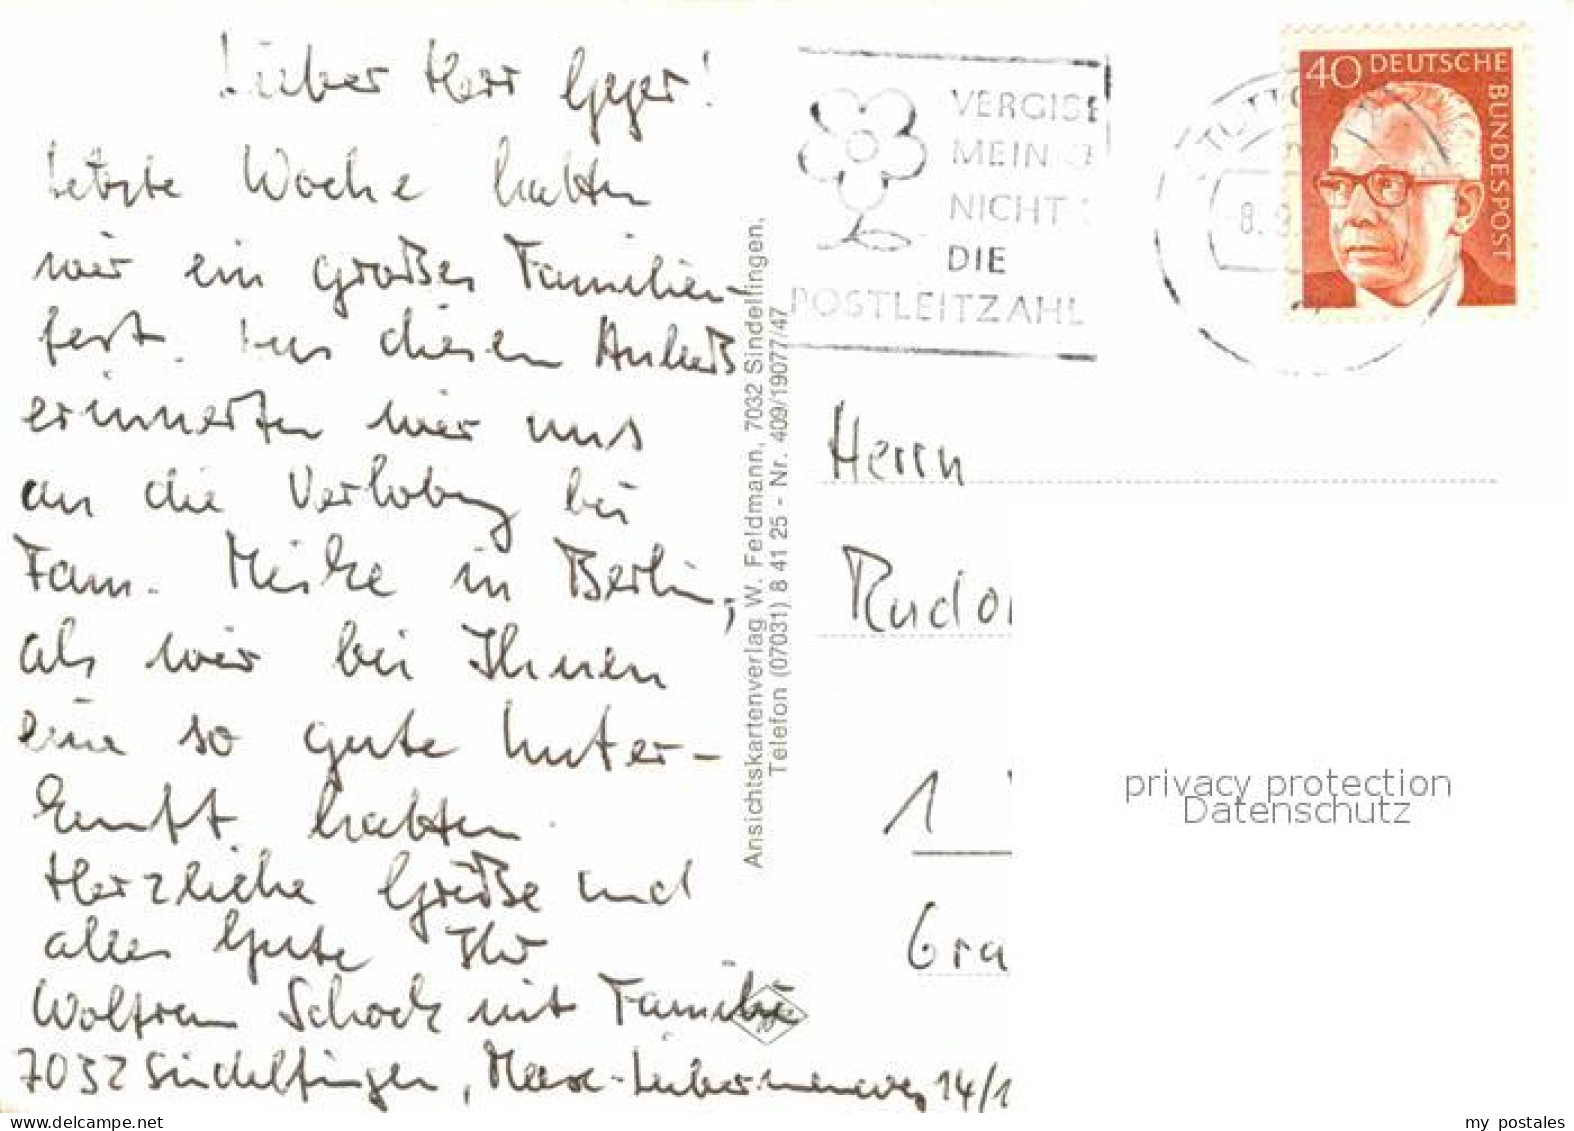 Lieber Herr Geyer!
Letzte Woche hatten
wir ein großes Familien-
fest. Aus diesem Anlaß
erinnerten wir uns
an die Verlobung bei
Fam. Meske in Berlin,
als wir bei Ihnen
eine so gute Unter-
kunft hatten.
Herzliche Grüße und
alles Gute Ihr
Wolfram Schock mit Familie
7032 Sindelfingen, Max-Liebermannweg 14/1
Ansichtskartenverlag W. Feldmann, 7032 Sindelfingen,
Telefon (07031) 8 41 25 - Nr. 409/19077/47
VERGISS
MEIN
NICHT
DIE
POSTLEITZAHL
8.
40 DEUTSCHE
BUNDESPOST
Herrn
Rudo
1
Gra
privacy protection
Datenschutz
www.delcampe.net
my_postales